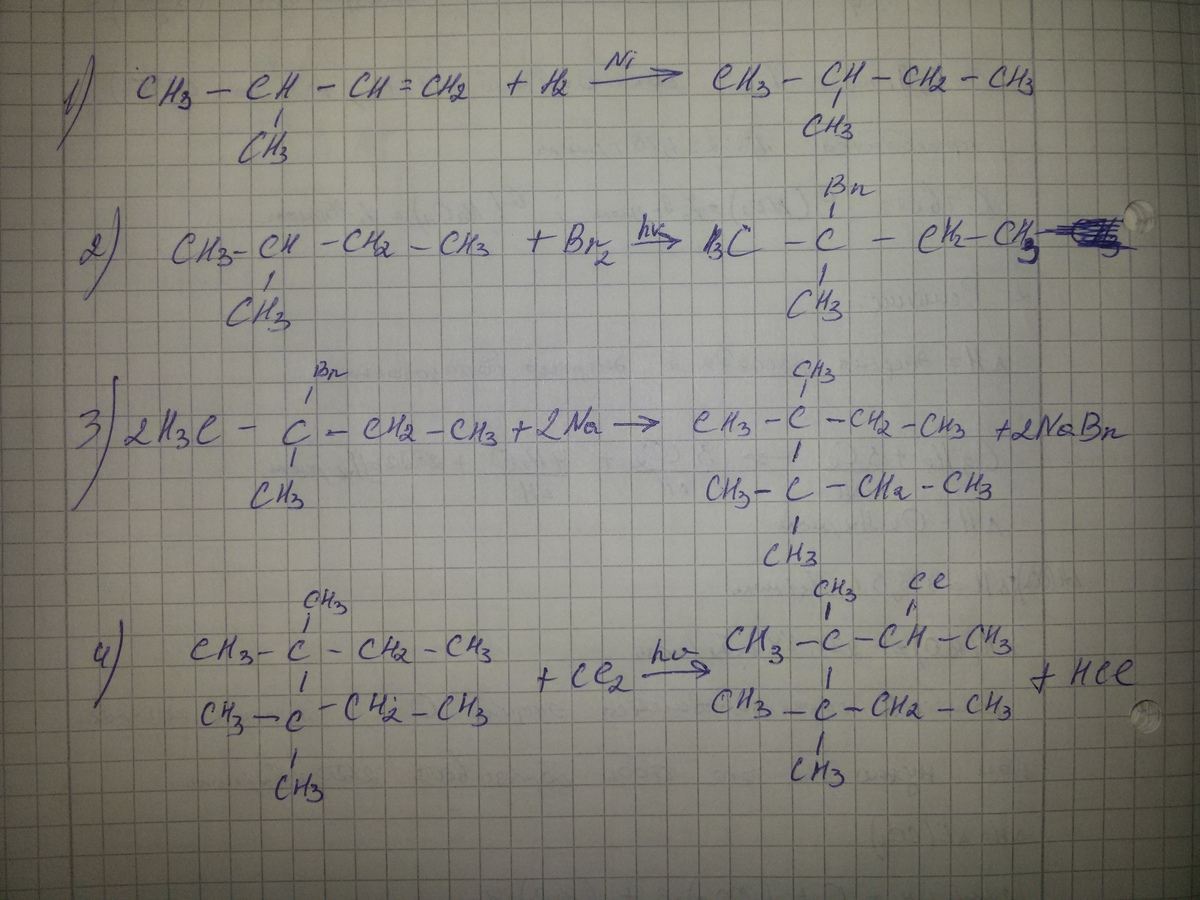 1) CH3 – CH – CH = CH2 + H2 Ni → CH3 – CH – CH2 – CH3
CH3 CH3
Br
2) CH3 – CH – CH2 – CH3 + Br2 hν → H3C – C – CH2 – CH3
CH3 CH3
Br CH3
3) 2H3C – C – CH2 – CH3 + 2Na → CH3 – C – CH2 – CH3 + 2NaBr
CH3 CH3 – C – CH2 – CH3
CH3
CH3 CH3 Cl
4) CH3 – C – CH2 – CH3 + Cl2 hν → CH3 – C – CH – CH3 + HCl
CH3 – C – CH2 – CH3 CH3 – C – CH2 – CH3
CH3 CH3